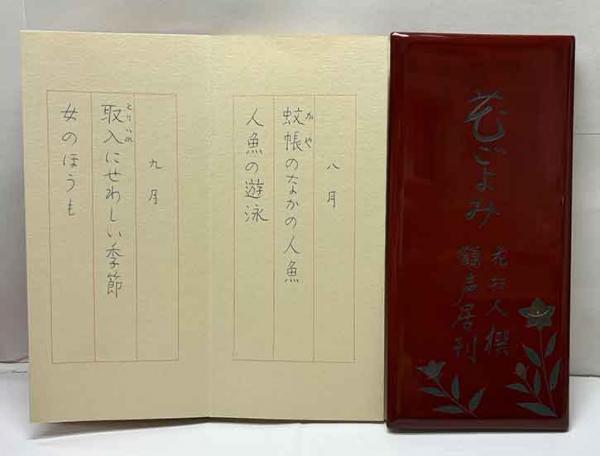 花ごよみ
撰
声居刊
八月
かや
蚊帳のなかの人魚
人魚の遊泳
九月
とりいれ
取入にせわしい季節
女のほうも